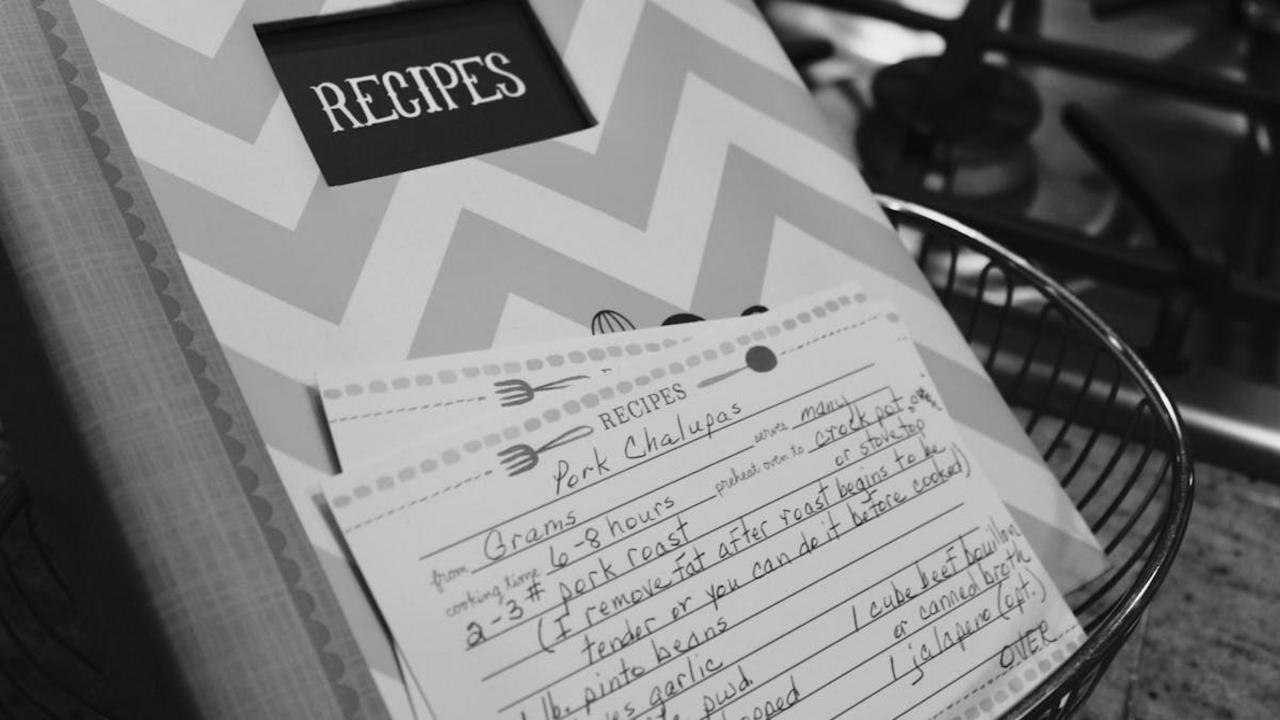 RECIPES
RECIPES
Pork Chalupas
from Grams serves many
cooking time 6-8 hours preheat oven to crock pot
or stove top
2-3# pork roast
(I remove fat after roast begins to be
tender or you can do it before cooked)
lb. pinto beans
garlic
pwd.
1 cube beef bouillon
or canned broth
1 jalapeno (opt.)
OVER